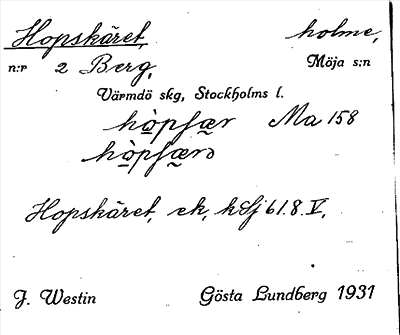 Hopskäret, holme,
n:r 2 Berg, Möja s:n
Värmdö skg, Stockholms l.
hò̱pʃæ̰r Ma 158
hò̱pʃæ̰rə
Hopskäret, ek, kSj 61.8.V,
J. Westin Gösta Lundberg 1931